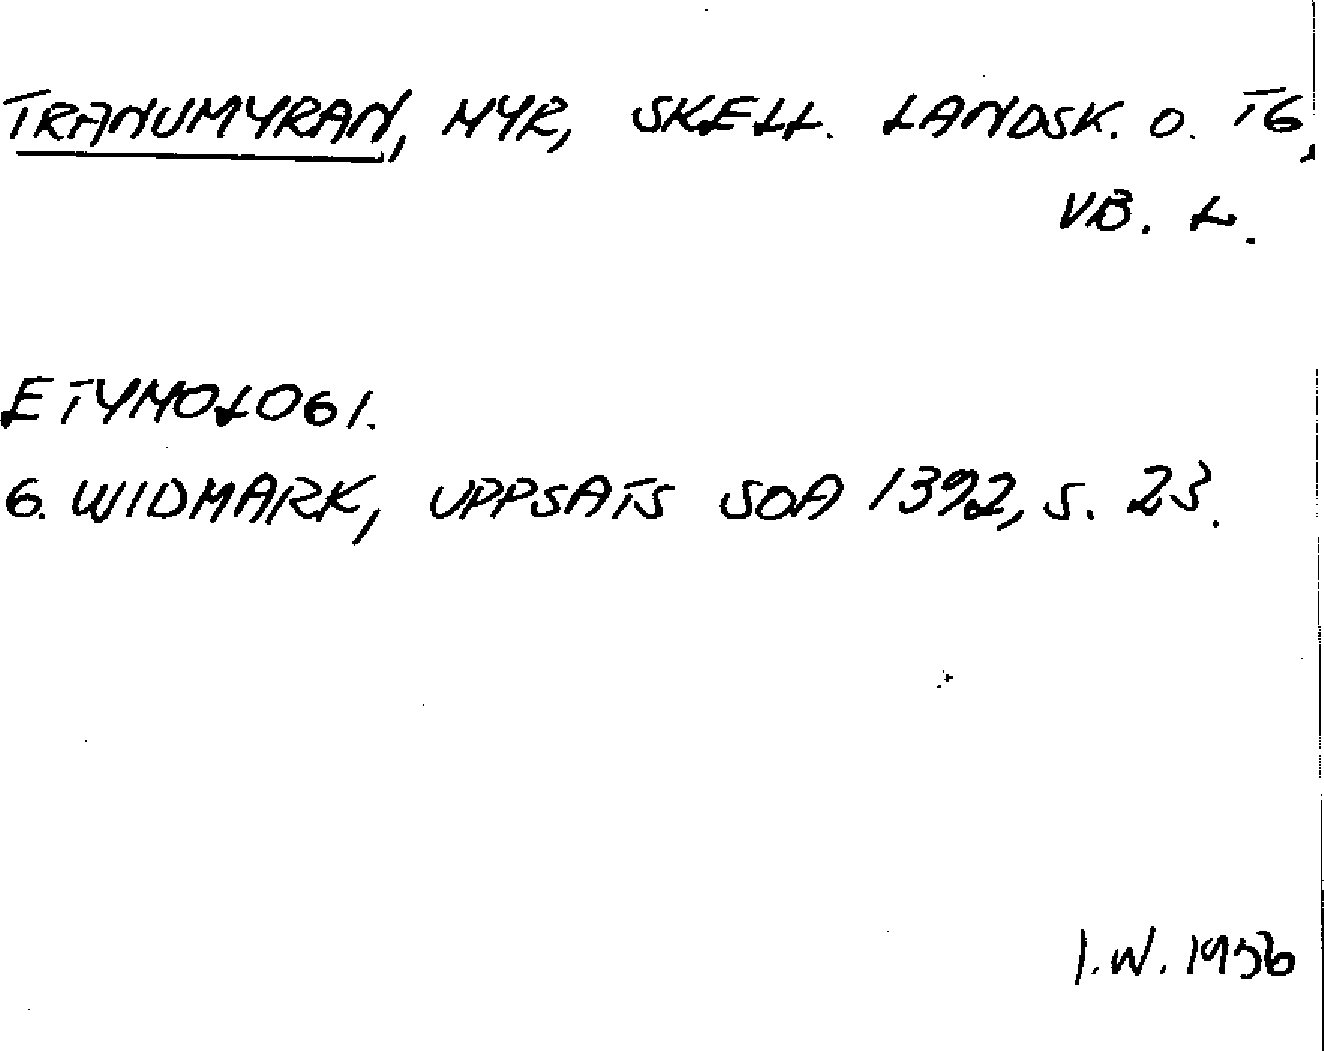 TRANUMYRAN, MYR, SKELL. LANDSK. O. TG,
VB. L.
ETYMOLOGI.
G. WIDMARK, UPPSATS SOA 1392, S. 23.
I.W. 1956